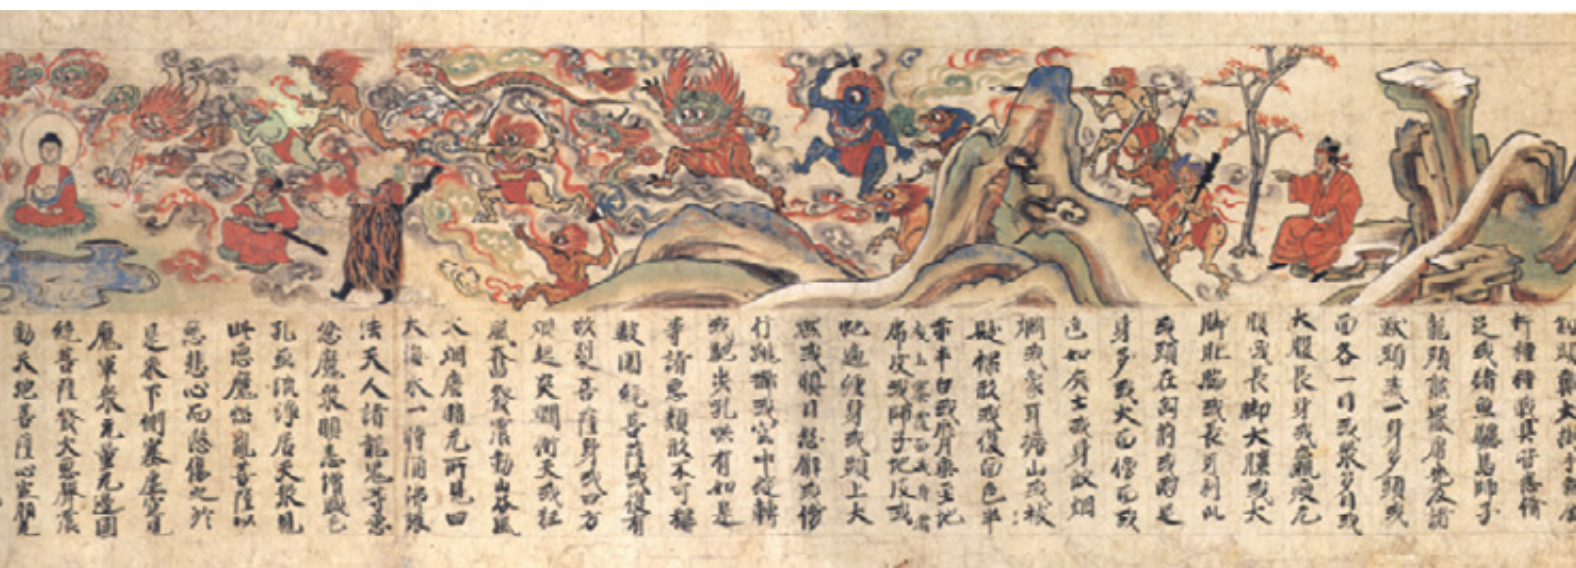 足或猪魚驢馬師子
龍頭熊羆虎兕及諸
獸頭或一身多頭或
面各一目或衆多目或
大腹長身或羸瘦无
腹或長脚大膝或大
脚肥腨或長牙利爪
或頭在匈前或兩足
身多或大面傍面或
色如灰土或身放烟
爓或象耳擔山或被
髮裸形或復面色半
赤半白或脣垂至地
或上褰覆面或身著
虎皮或師子蛇皮或
蛇遍纒身或頭上火
燃或瞋目怒臂或傍
行跳擲或空中旋轉
或馳步吼嚇有如是
等諸惡類形不可稱
數圍繞菩薩或復有
欲裂菩薩身或四方
烟起炎爓衝天或狂
風奮發震動山谷風
火烟塵暗无所見四
大海水一時涌沸護
法天人諸龍鬼等悉
忿魔衆瞋恚增盛毛
孔血流淨居天衆見
此惡魔惱亂菩薩以
慈悲心而愍傷之於
是來下側塞虛空見
魔軍衆无量无邊圍
繞菩薩發大惡聲震
動天地菩薩心定顏